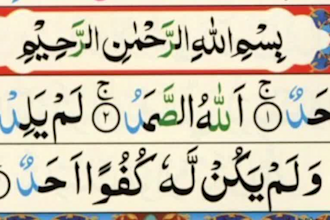 بِسْمِ اللهِ الرَّحْمٰنِ الرَّحِيْمِ
حَدٌ ۚ ۝١ اَللهُ الصَّمَدُ ۚ ۝٢ لَمْ يَلِدْ
وَلَمْ يَكُنْ لَّهٗ كُفُوًا اَحَدٌ